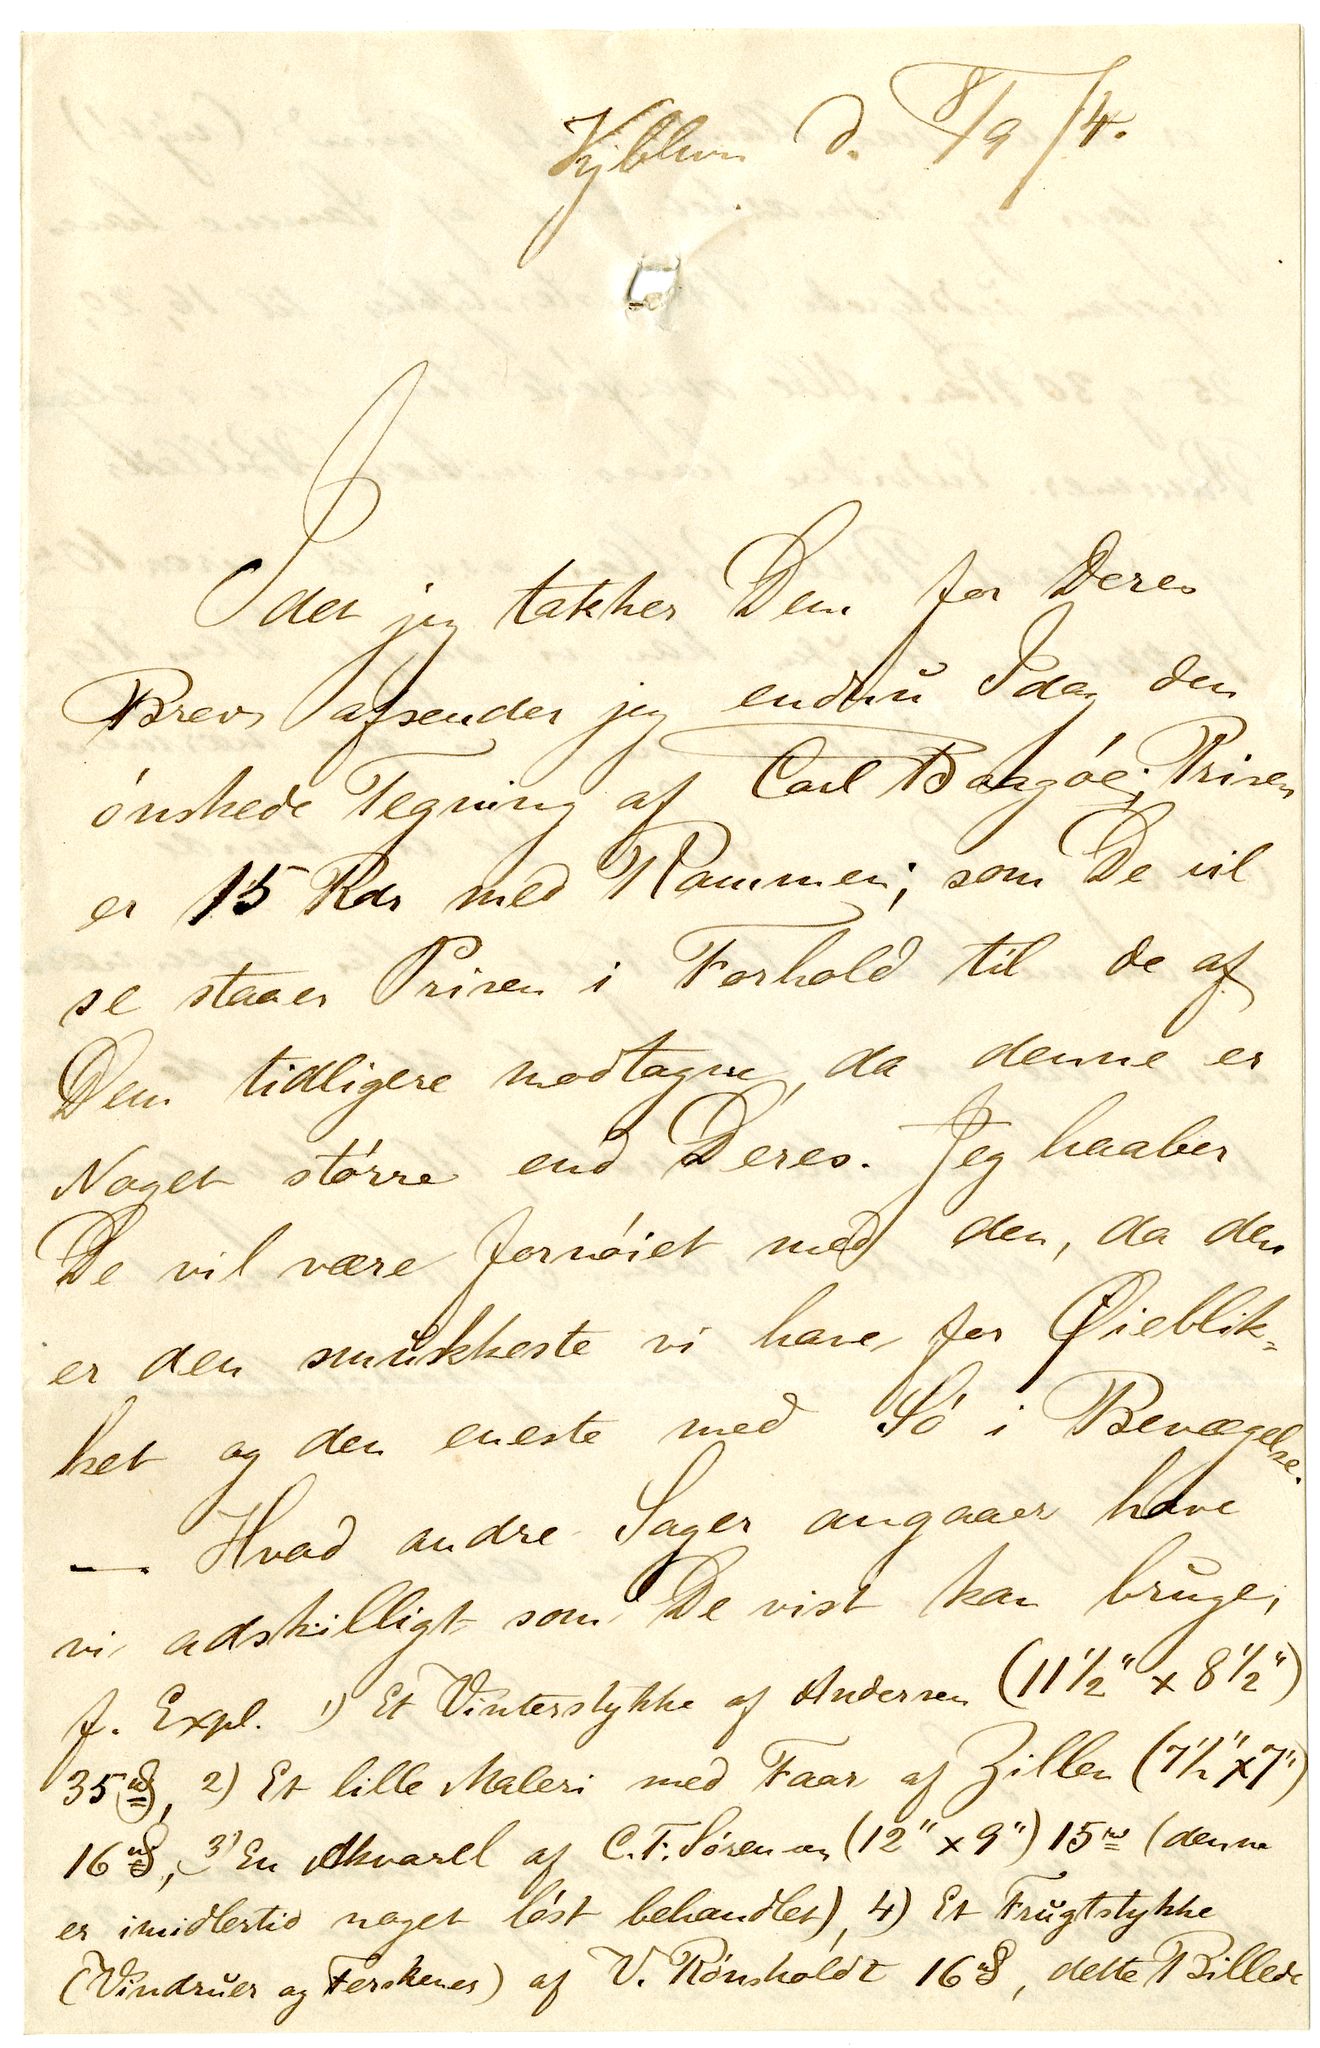 Kjbhvn d. 8/9 74.
Idet jeg takker Dem for Deres
Brev, afsender jeg endnu Idag den
ønskede Tegning af Carl Baagøe; Prisen
er 15 Rdr med Rammen; som De vil
se staaer Prisen i Forhold til de af
Dem tidligere modtagne, da denne er
Noget større end Deres. Jeg haaber
De vil være fornøiet med den, da den
er den smukkeste vi have for Øieblik-
ket og den eneste med Sø i Bevægelse.
— Hvad andre Sager angaaer have
vi adskilligt som De vist kan bruge,
f. Expl. 1) Et Vinterstykke af Andersen (11 1/2" x 8 1/2")
35 rdl, 2) Et lille Maleri med Faar af Zillen (7 1/2" x 7")
16 rdl, 3) En Akvarel af C. F. Sørensen (12" x 9") 15 rd (denne
er imidlertid noget løst behandlet), 4) Et Frugtstykke
(Vindruer og Ferskener) af V. Rønsholdt 16 rdl, dette Billede